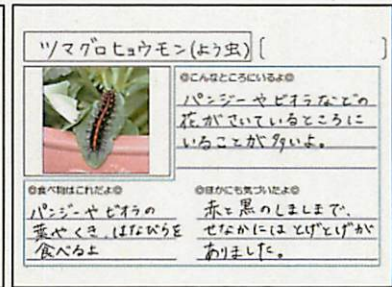 ツマグロヒョウモン(よう虫) [ ]
◎こんなところにいるよ◎
パンジーやビオラなどの
花がさいているところに
いることが多いよ。
◎食べ物はこれだよ◎
パンジーやビオラの
葉やくき、はなびらを
食べるよ
◎ほかにも気づいたよ◎
赤と黒のしましまで、
せなかにはとげとげが
ありました。